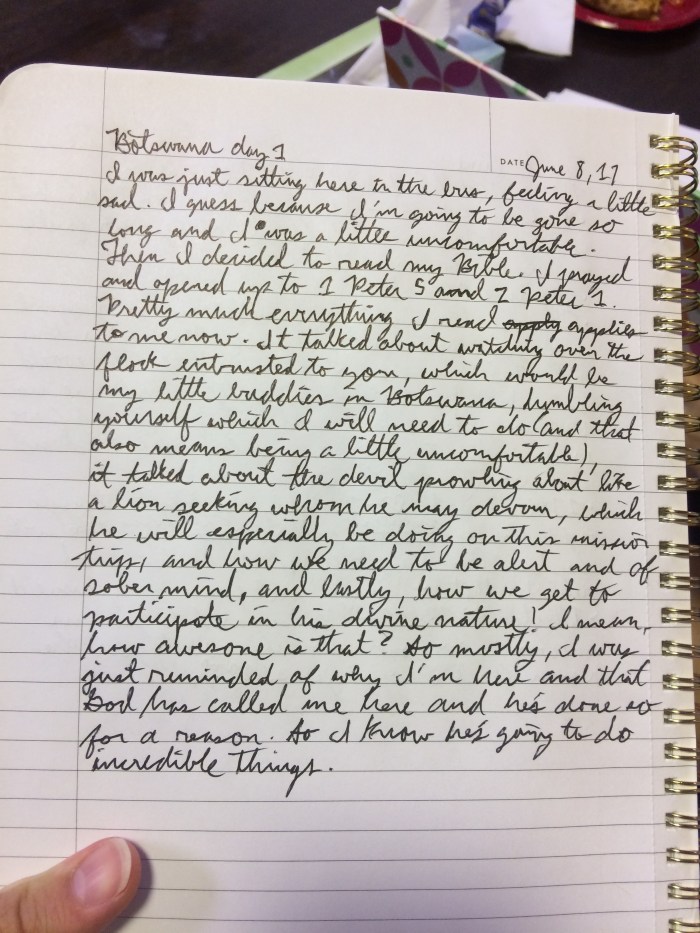 Botswana day 1
DATE June 8, 17
I was just sitting here in the bus, feeling a little
sad. I guess because I'm going to be gone so
long and I was a little uncomfortable.
Then I decided to read my Bible. I prayed
and opened up to 1 Peter 5 and 2 Peter 1.
Pretty much everything I read apply applies
to me now. It talked about watching over the
flock entrusted to you, which would be
my little buddies in Botswana, humbling
yourself which I will need to do (and that
also means being a little uncomfortable),
it talked about the devil prowling about like
a lion seeking whom he may devour, which
he will especially be doing on this mission
trip, and how we need to be alert and of
sober mind, and lastly, how we get to
participate in his divine nature! I mean,
how awesome is that? So mostly, I was
just reminded of why I'm here and that
God has called me here and he's done so
for a reason. So I know he's going to do
incredible things.